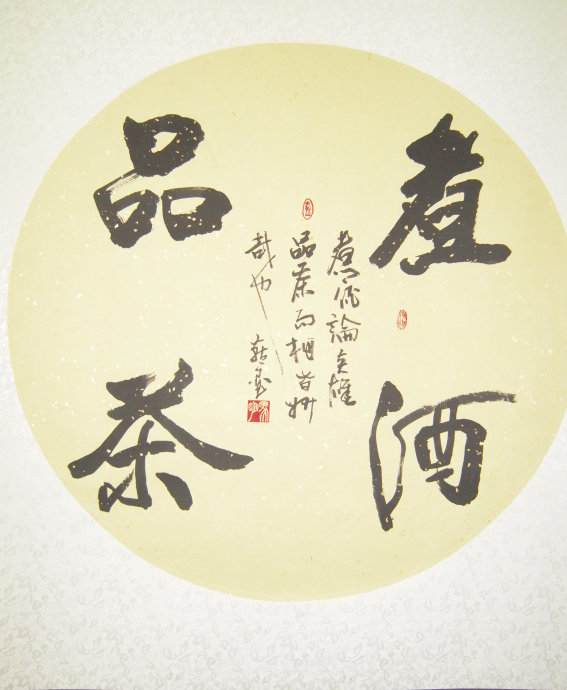 煮酒
品茶
煮酒論英雄
品茶而相
哉也